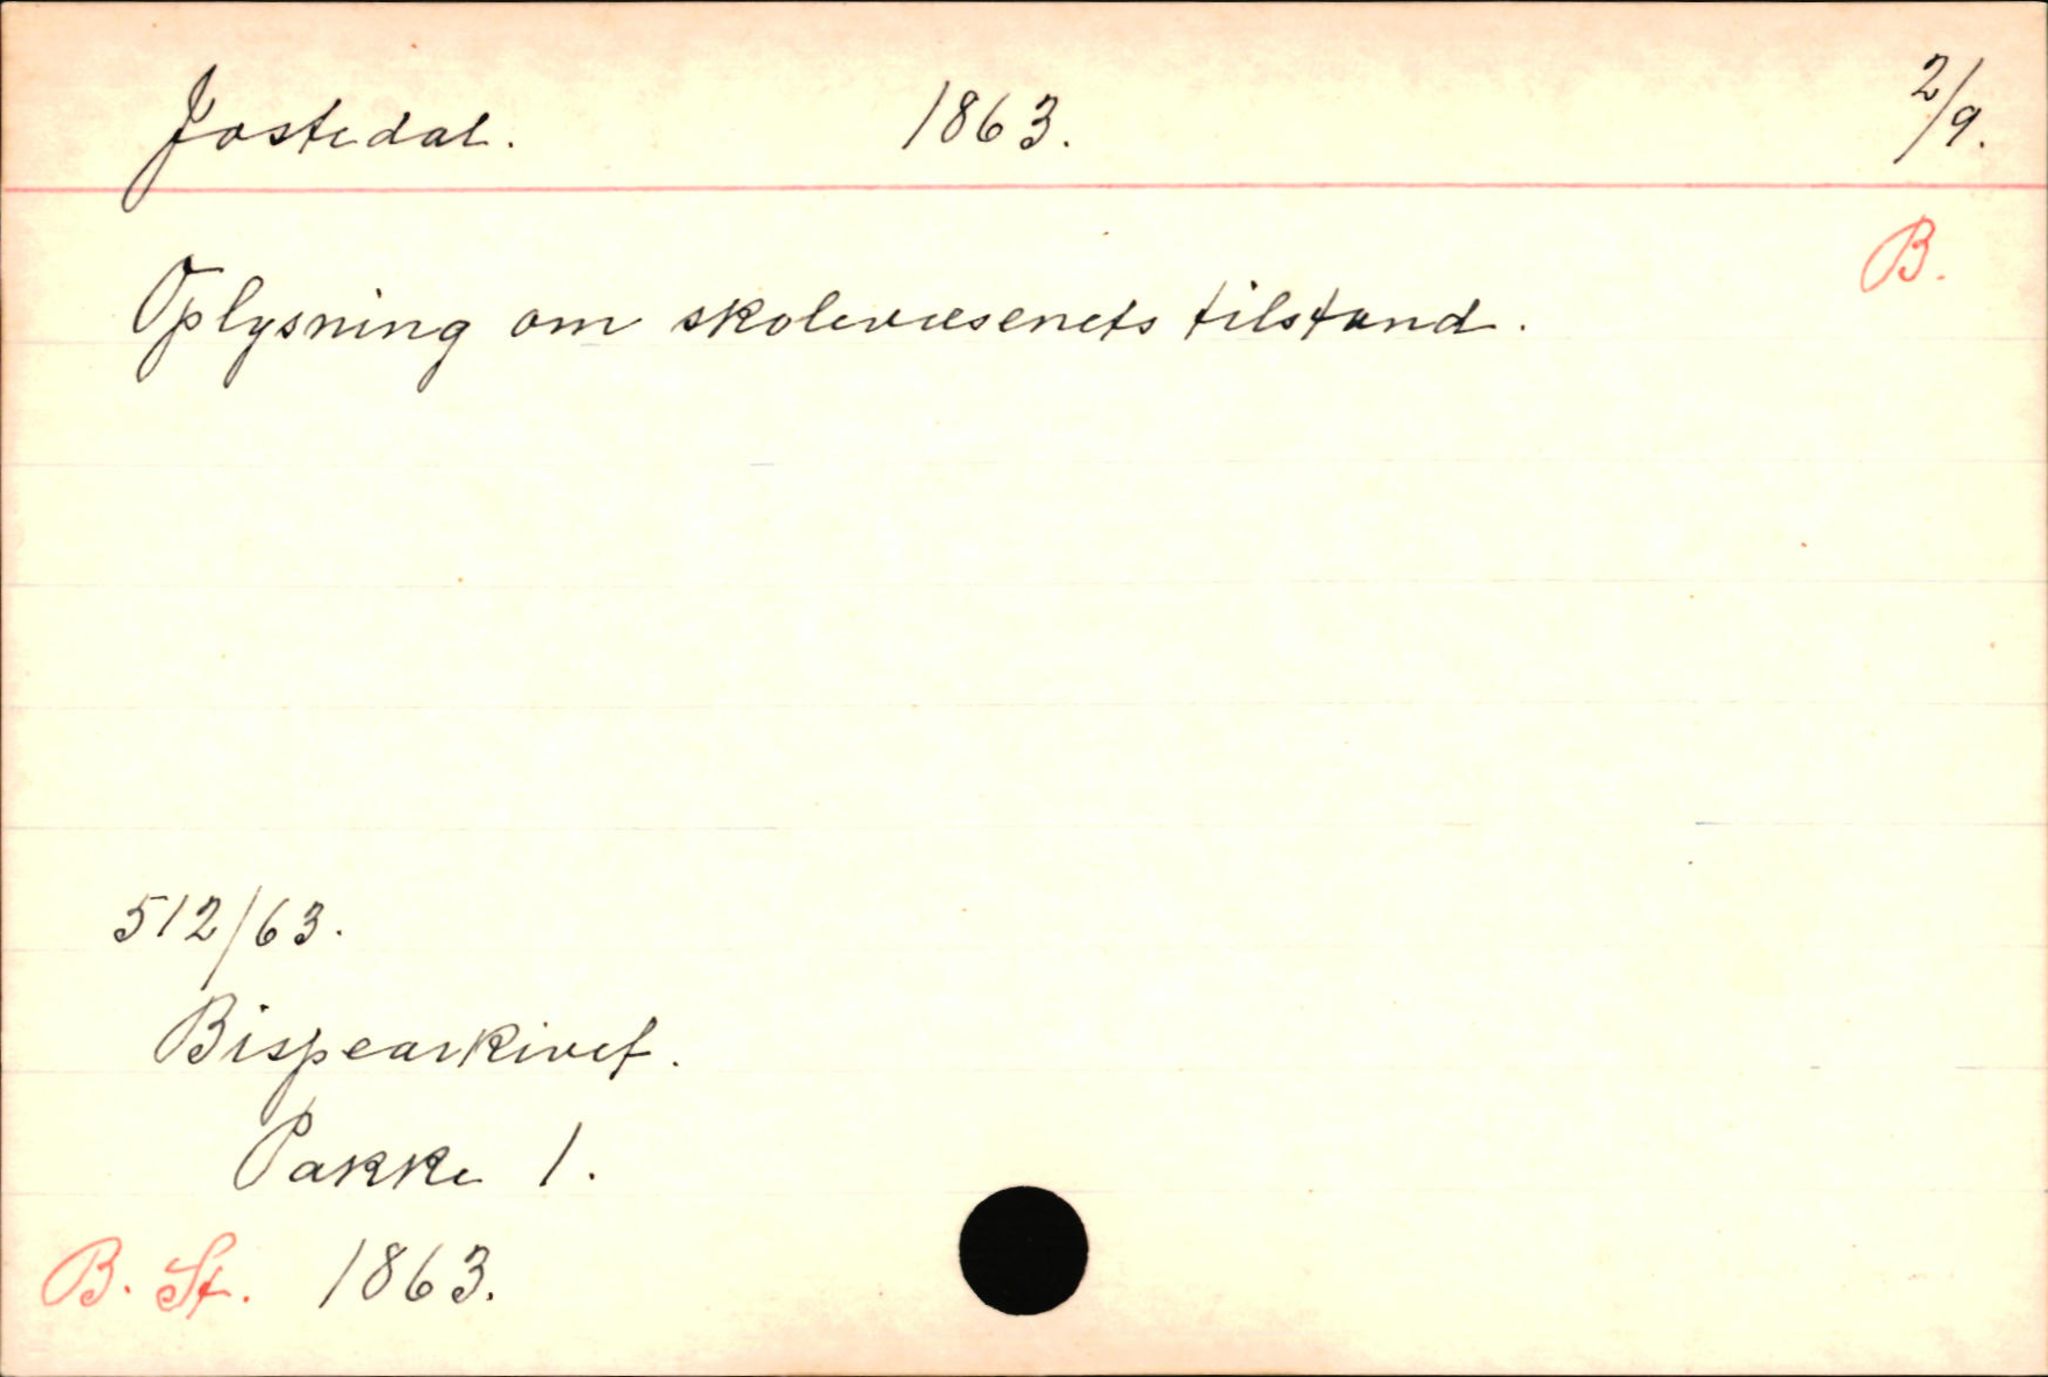 Jostedal. 1863. 2/9.
B.
Oplysning om skolevæsenets tilstand.
512/63.
Bispearkivet.
Pakke 1.
B. St. 1863.